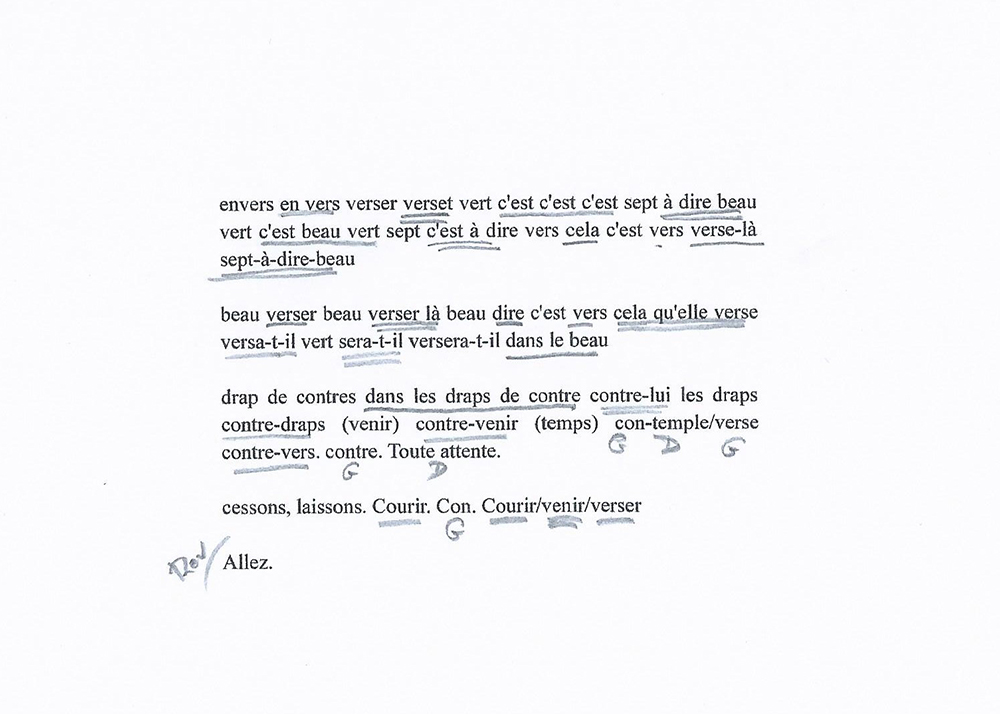 envers en vers verser verset vert c'est c'est c'est sept à dire beau
vert c'est beau vert sept c'est à dire vers cela c'est vers verse-là
sept-à-dire-beau
beau verser beau verser là beau dire c'est vers cela qu'elle verse
versa-t-il vert sera-t-il versera-t-il dans le beau
drap de contres dans les draps de contre contre-lui les draps
contre-draps (venir) contre-venir (temps) con-temple/verse
G D G
contre-vers. contre. Toute attente.
G D
cessons, laissons. Courir. Con. Courir/venir/verser
G
Allez.